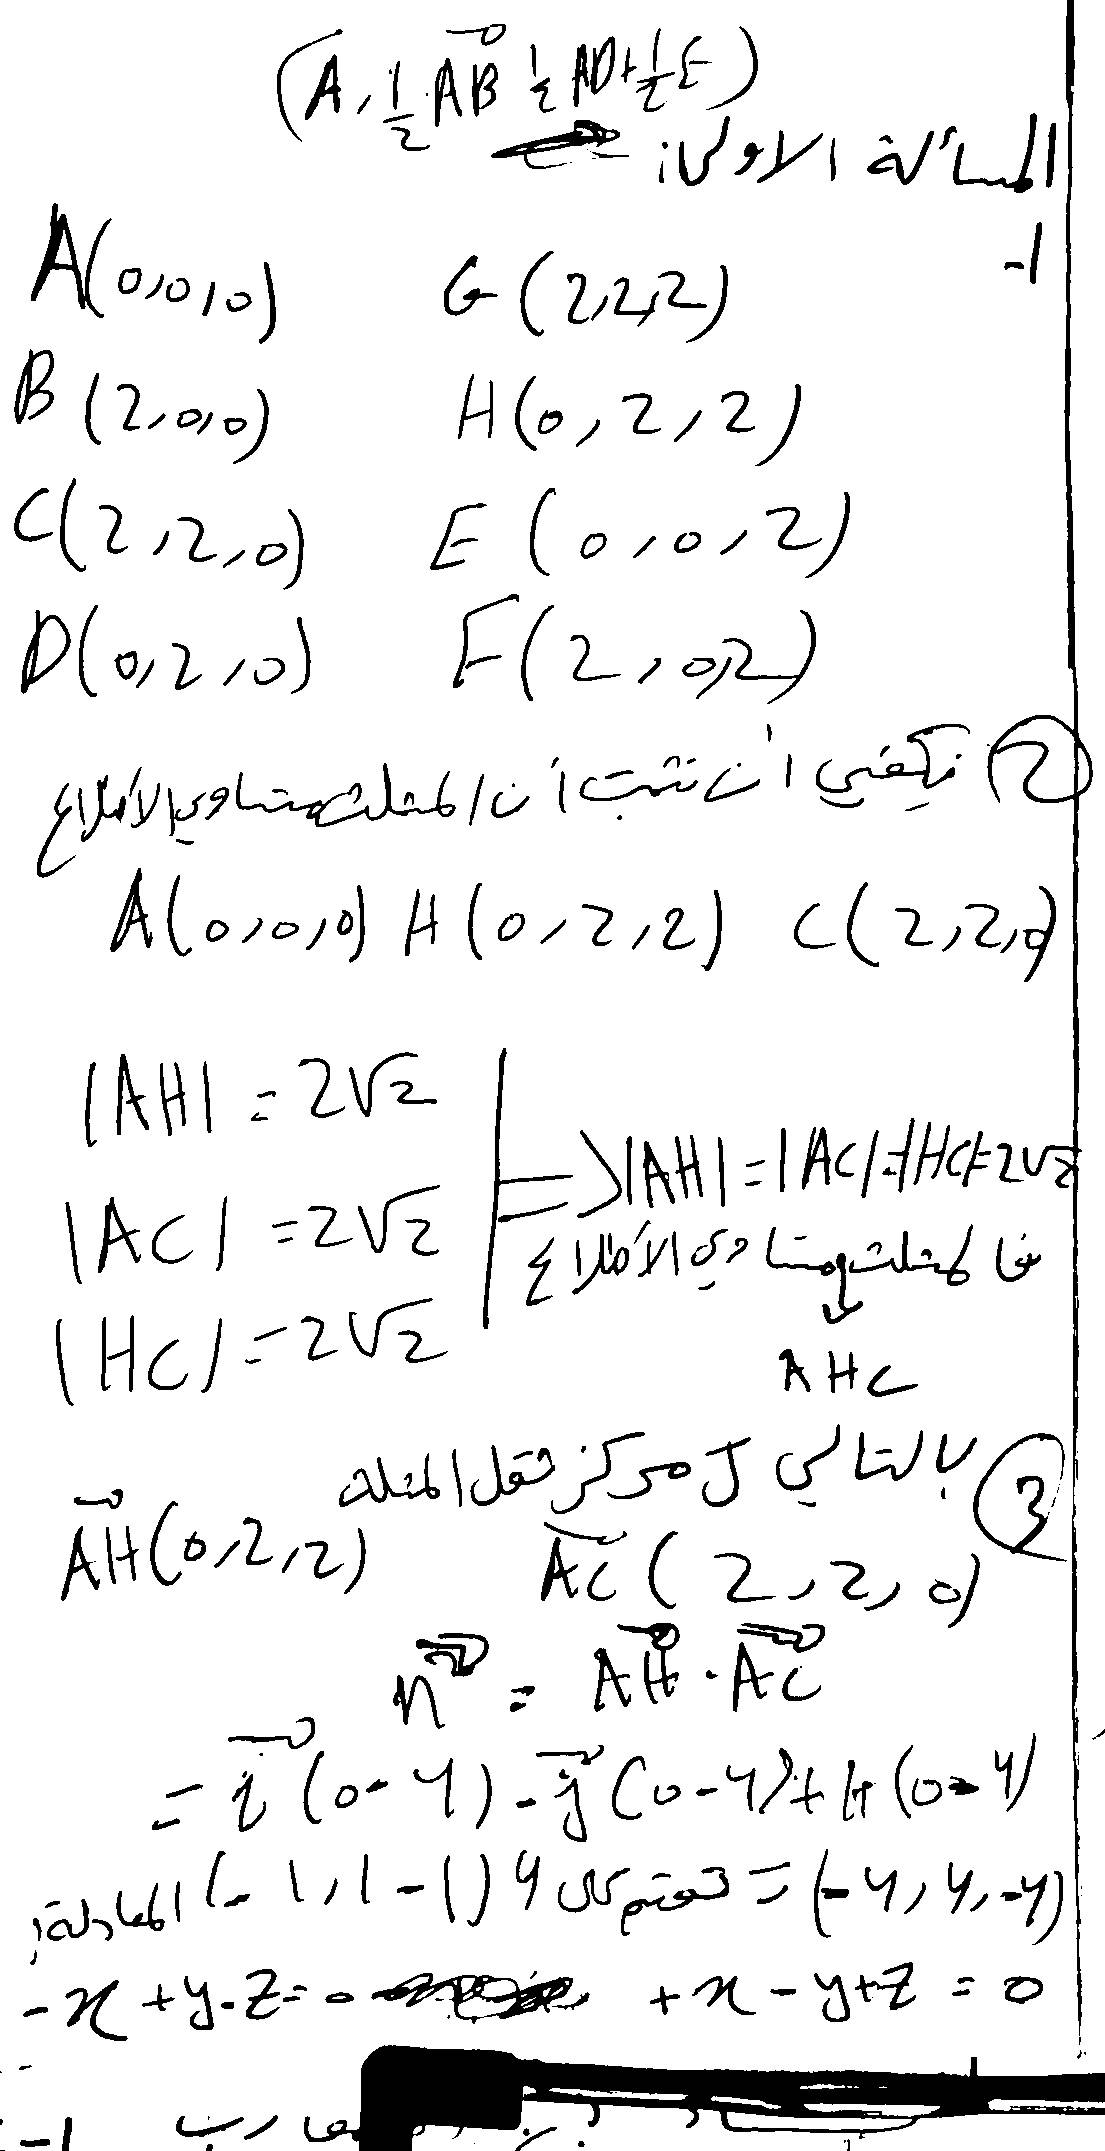 (A, 1/2 AB 1/2 AD + 1/2 E)
المسألة الاولى:
-1
A(0,0,0) G(2,2,2)
B(2,0,0) H(0,2,2)
C(2,2,0) E(0,0,2)
D(0,2,0) F(2,0,2)
② فيكفي أن نثبت أن المثلث متساوي الأضلاع
A(0,0,0) H(0,2,2) C(2,2,0)
|AH| = 2√2
|AC| = 2√2 => |AH| = |AC| = |HC| = 2√2
فالمثلث متساوي الأضلاع
|HC| = 2√2
AHC
③ بالتالي J مركز ثقل المثلث
AH(0,2,2) AC(2,2,0)
n = AH · AC
= i(0-4) - j(0-4) + k(0-4)
= (-4,4,-4) نقسم على 4 (-1,1-1) المعادلة:
-x + y - z = 0 +x - y + z = 0